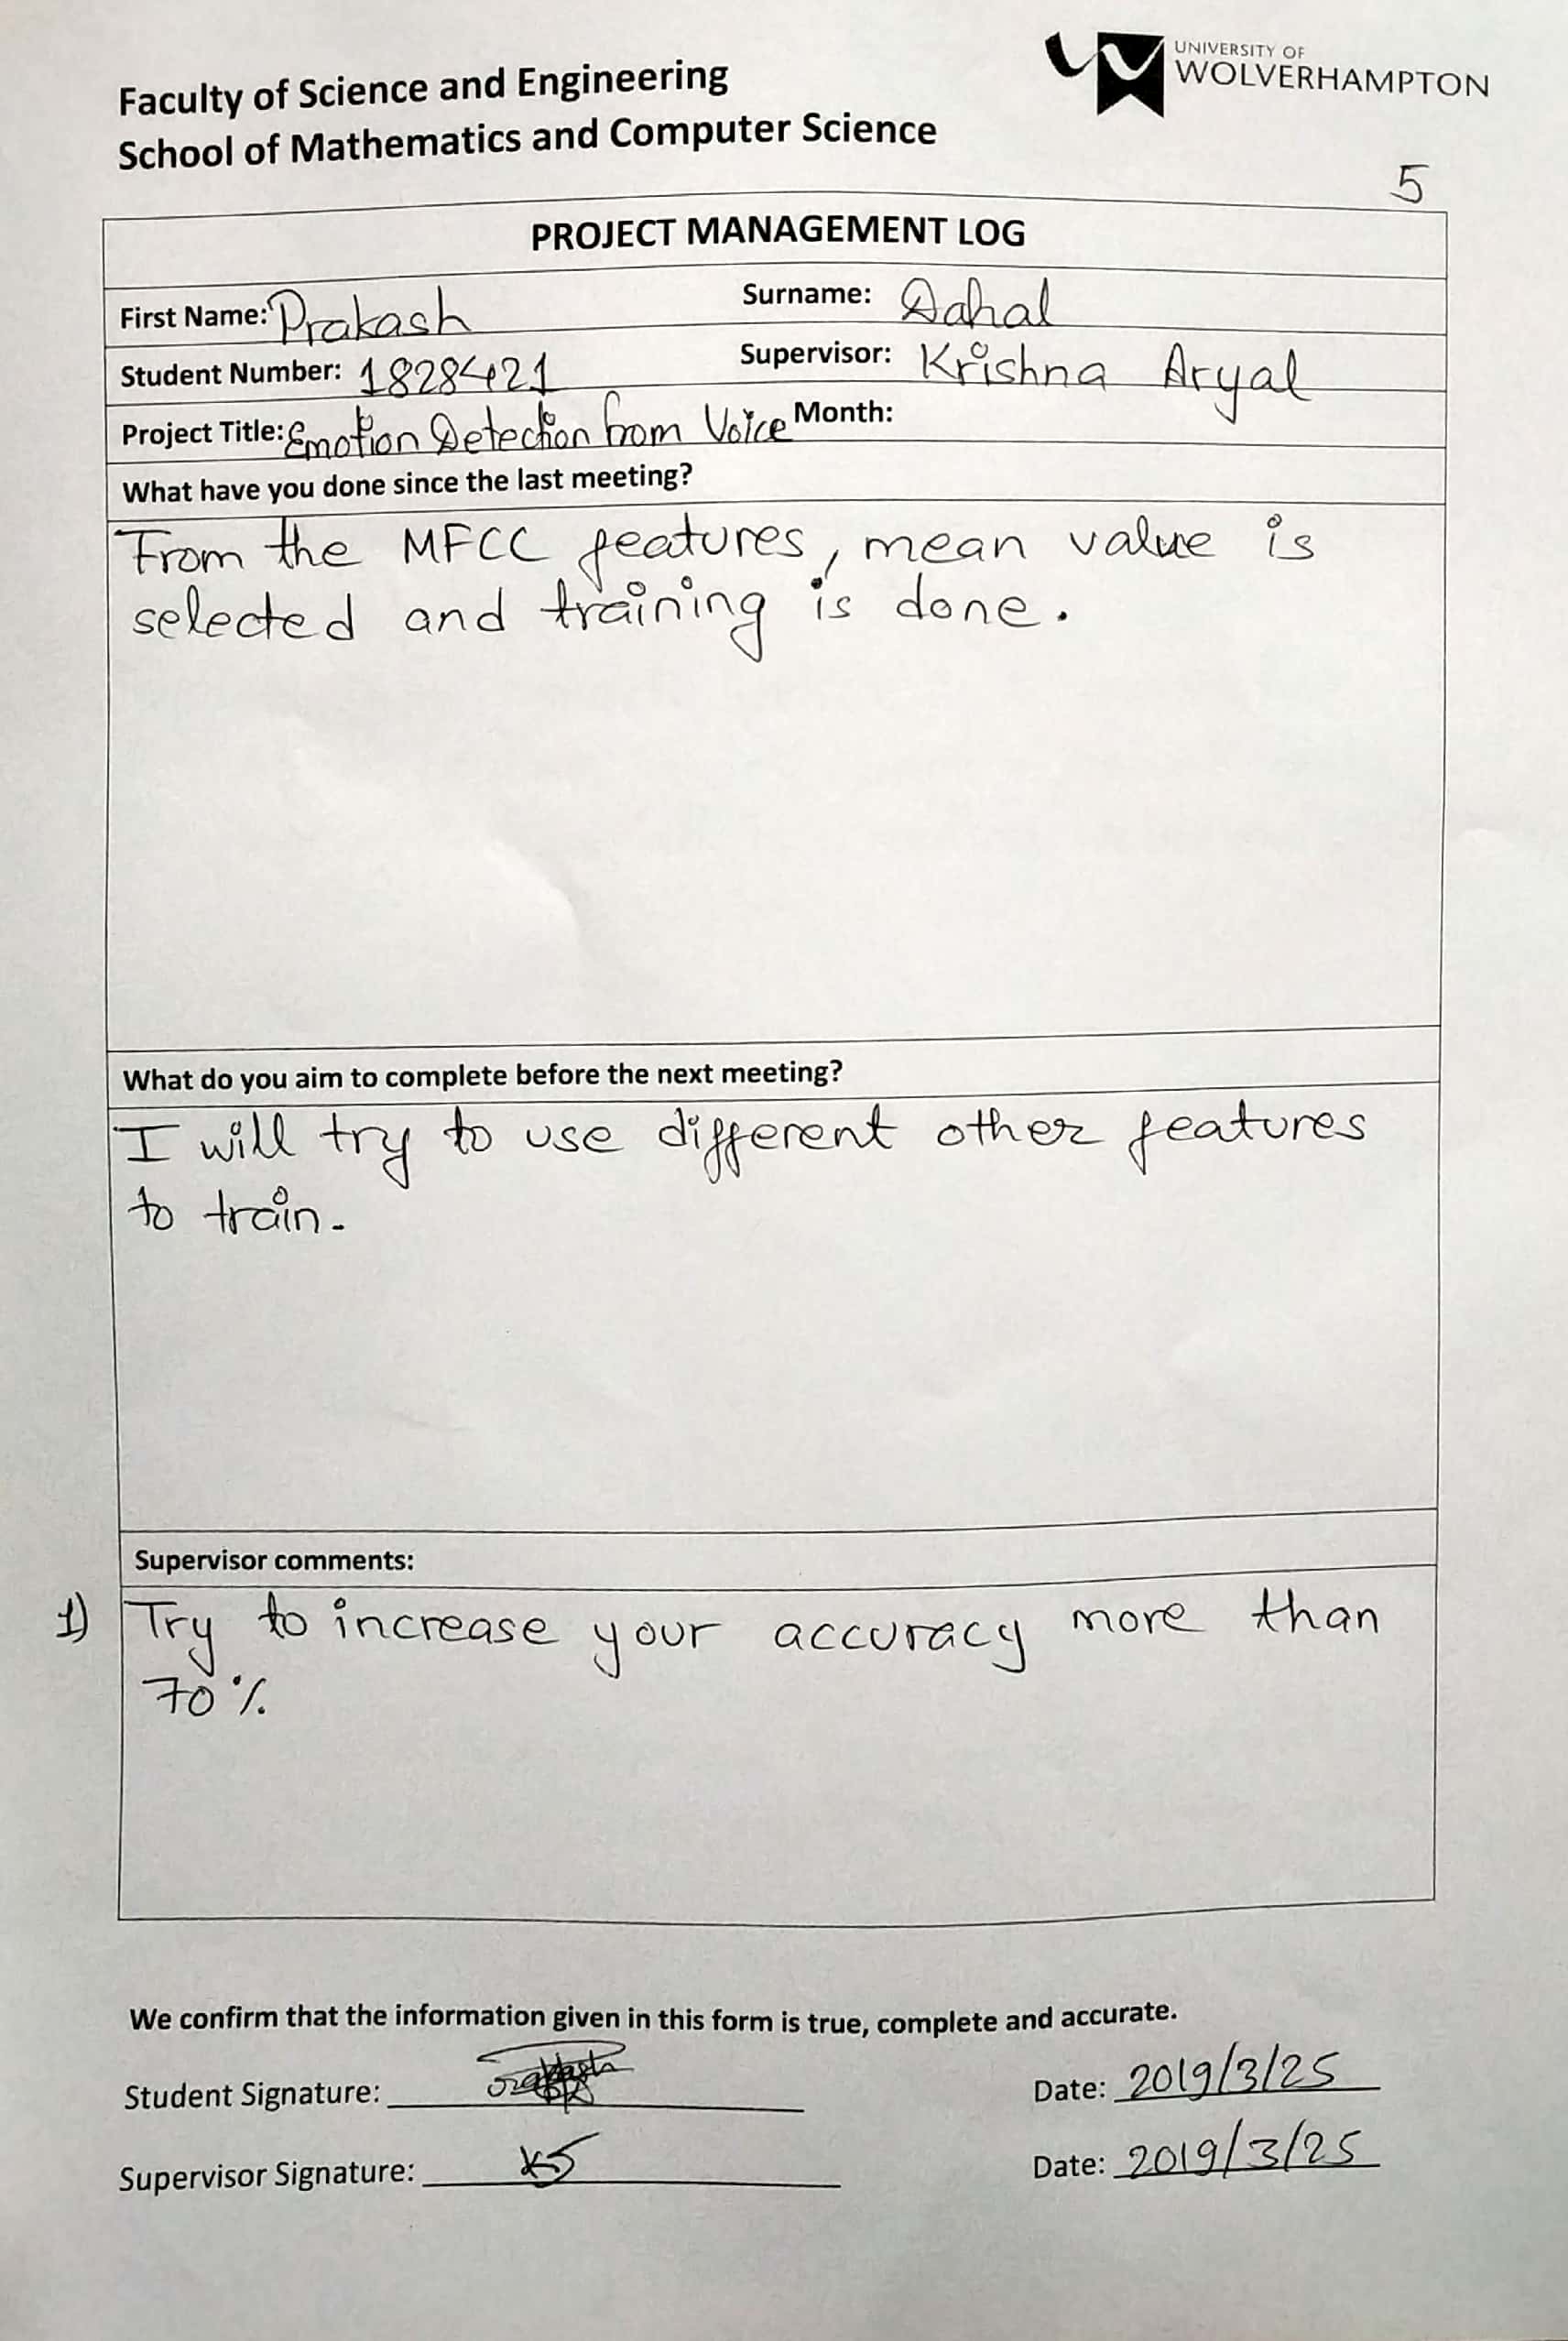 UNIVERSITY OF
WOLVERHAMPTON
Faculty of Science and Engineering
School of Mathematics and Computer Science
5
PROJECT MANAGEMENT LOG
First Name: Prakash Surname: Dahal
Student Number: 1828421 Supervisor: Krishna Aryal
Project Title: Emotion Detection from Voice Month:
What have you done since the last meeting?
From the MFCC features, mean value is
selected and training is done.
What do you aim to complete before the next meeting?
I will try to use different other features
to train.
Supervisor comments:
1) Try to increase your accuracy more than
70%
We confirm that the information given in this form is true, complete and accurate.
Student Signature: Date: 2019/3/25
Supervisor Signature: Date: 2019/3/25